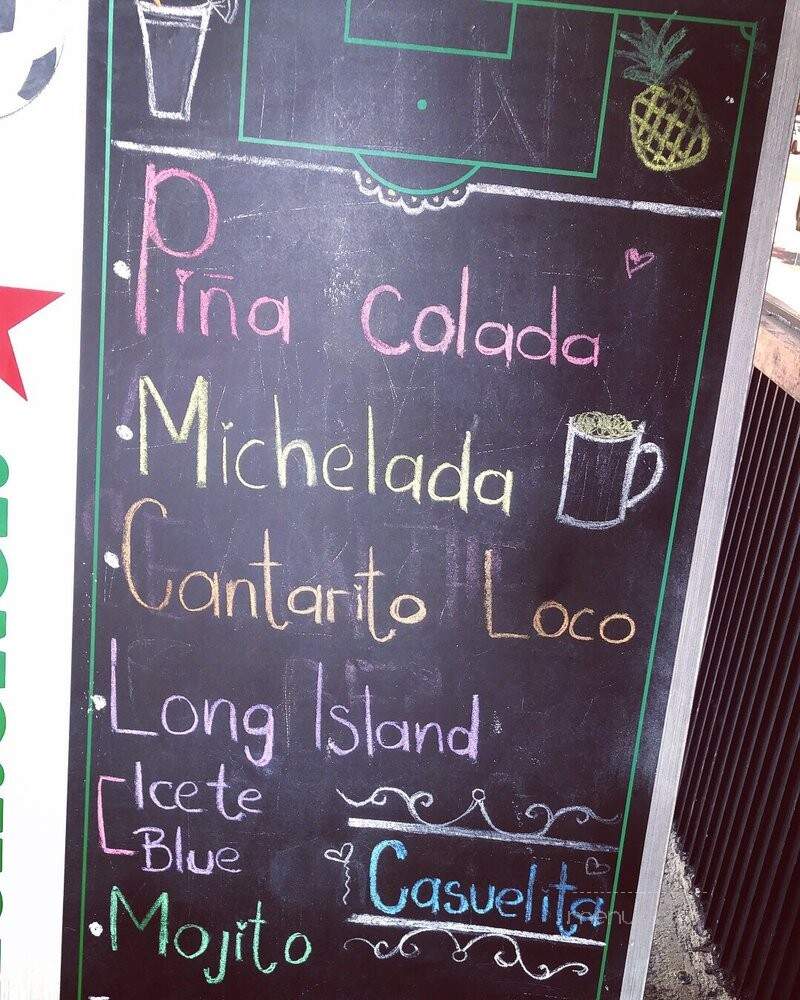 Piña Colada
Michelada
Cantarito Loco
Long Island
Icete
Blue
Casuelita
Mojito
menu